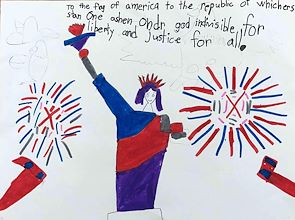 To the flag of america to the republic of whichers
stan One ashen, ondr god indivisible, for
liberty and Justice for all.